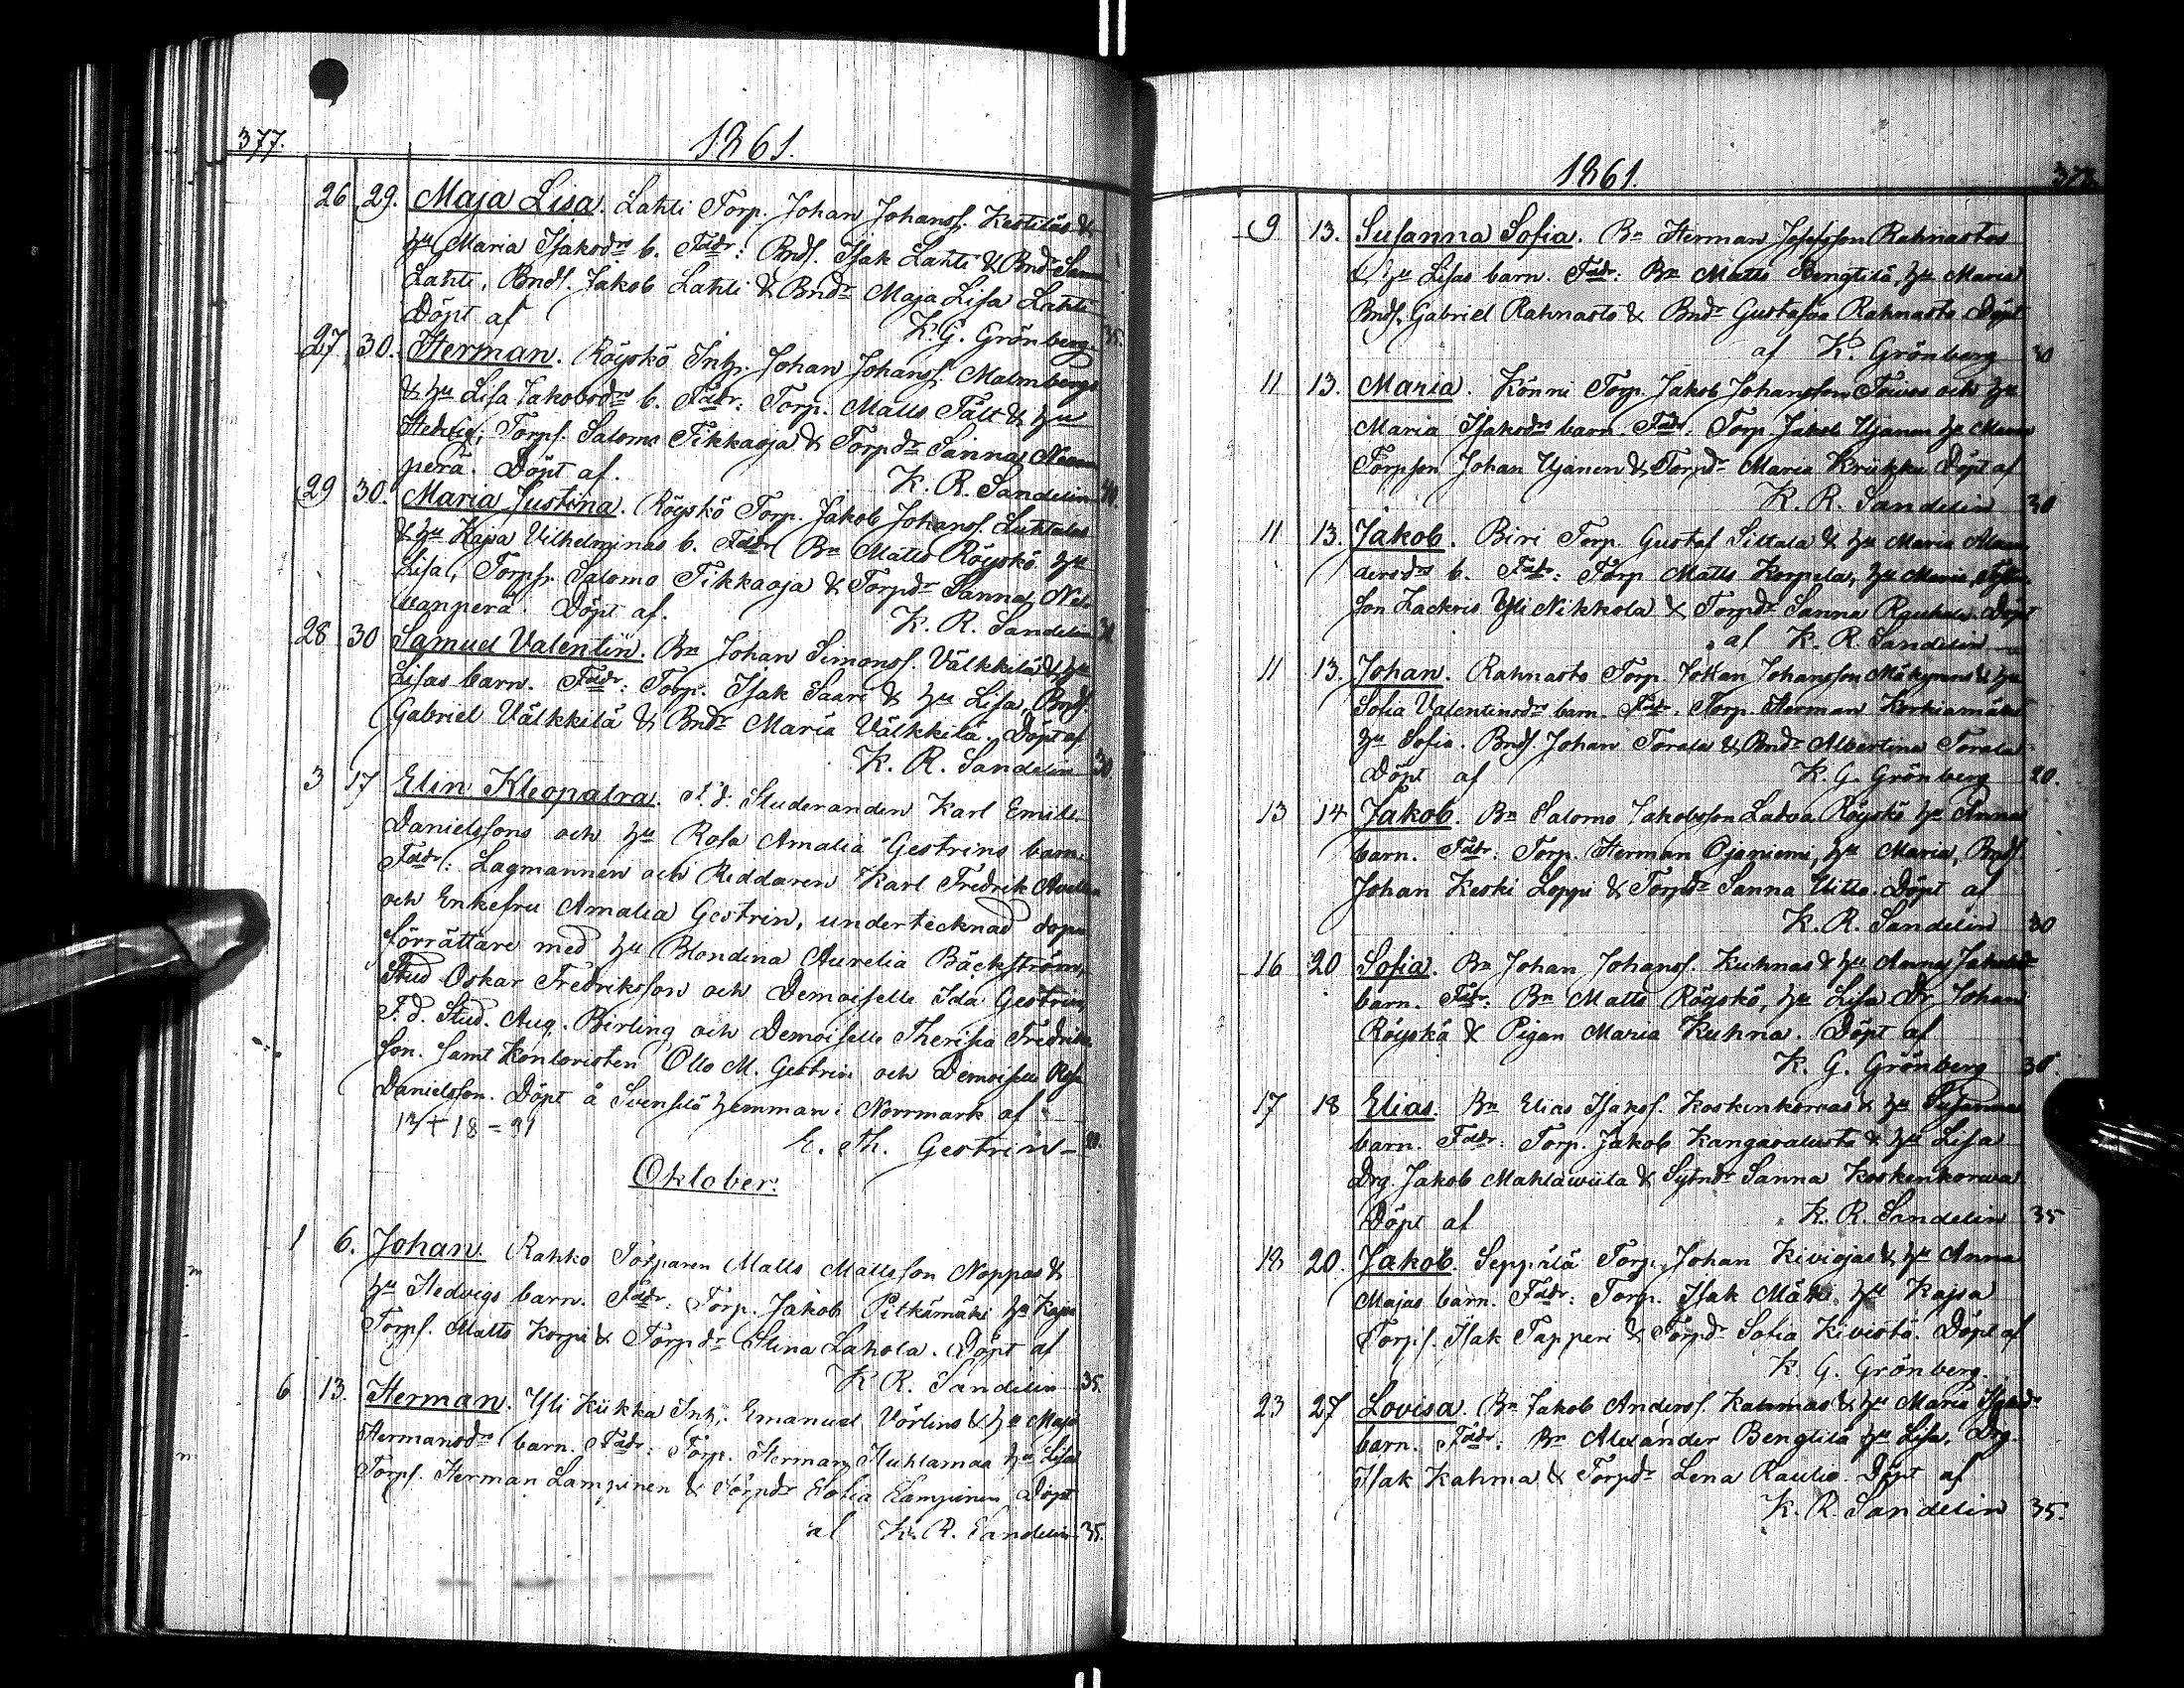 377.
1861.
26 29. Maja Lisa. Lahti Torp. Johan Johanss. Kestiläs &
hu Maria Isaksdrs b. Faddr: Bnds. Isak Lahti & Bndr
Lahti, Bnds. Jakob Lahti & Bndr Maja Lisa Lahti
Döpt af K. G. Grönberg 35.
27 30. Herman. Röyskö Inh. Johan Johanss. Malmbergs
& hu Lisa Jakobsdrs b. Faddr: Torp. Matts Fält & hu
Hedvig; Torps. Salomo Tikkaoja & Torpdr Sanna
perä. Döpt af. K. R. Sandelin 40.
29 30. Maria Justina. Röyskö Torp. Jakob Johanss. Luhtalas
& hu Kajsa Vilhelminas b. Faddr Bn Matts Röyskö hu
Lisa, Torps. Salomo Tikkaoja & Torpdr Sanna
vanperä. Döpt af. K. R. Sandelin 30.
28 30 Samuel Valentin. Bn Johan Simonss. Välkkilä & hu
Lisas barn. Faddr: Torp. Isak Saari & hu Lisa, Bnds
Gabriel Välkkilä & Bndr Maria Välkkilä. Döpt af
K. R. Sandelin 30.
3 17 Elin Kleopatra. f.d. Studeranden Karl Emil
Danielssons och hu Rosa Amalia Gestrins barn.
Faddr: Lagmannen och Riddaren Karl Fredrik
och Enkefru Amalia Gestrin, undertecknad dop
förrättare med hu Blondina Aurelia Bäckström,
Stud Oskar Fredriksson och Demoiselle Ida Gestrin,
F.d. Stud. Aug. Birling och Demoiselle Theresia Fredriks
son. samt Kontoristen Otto M. Gestrin och Demoiselle Rosa
Danielsson. Döpt å Svensilä hemman i Norrmark af
13+18=31
E. Th. Gestrin 20.
Oktober.
1 6. Johan. Rahko Torparen Matts Mattsson Noppas &
hu Hedvigs barn. Faddr: Torp. Jakob Pitkämäki hu Kajsa
Torps. Matts Korpi & Torpdr Stina Lahola. Döpt af
K R. Sandelin 35.
6 13. Herman. Yli Kiikka Inh. Emanuel Vörlins & hu Maja
Hermansdrs barn. Faddr: Torp. Herman Huhtamaa hu Lisa
Torps. Herman Lampinen & Torpdr Sofia Lampinen Döpt
af K. R. Sandelin 35.
1861.
9 13. Susanna Sofia. Bn Herman Josefsson Rahnastos
& hu Lisas barn. Faddr: Bn Matts Bengtilä, hu Maria
Bnds. Gabriel Rahnasto & Bndr Gustafva Rahnasto. Döpt
af K. Grönberg 30
11 13. Maria. Könni Torp. Jakob Johansson och hu
Maria Isaksdrs barn. Faddr: Torp Jakob Ujanen hu Maria
Torpson Johan Ujanen & Torpdr Maria Krikku Döpt af
K. R. Sandelin 30
11 13. Jakob. Biri Torp. Gustaf Siltala & hu Maria
dersdrs b. Faddr: Torp Matts Korpela, hu Maria,
son Zackris Yli Nikkola & Torpdr Sanna Rauhala. Döpt
af K. R. Sandelin
11 13. Johan. Rahnasto Torp. Johan Johansson Mäkynens & hu
Sofia Valentinsdrs barn. Faddr. Torp. Herman Korkiamäki
hu Sofia. Bnds. Johan Torala & Bndr Albertina Torala
Döpt af K. G. Grönberg 20.
13 14 Jakob. Bn Salomo Jakobsson Latva Röyskö hu Annas
barn. Faddr: Torp. Herman Ojaniemi, hu Maria, Bnds
Johan Keski Loppi & Torpdr Sanna Uitto. Döpt af
K. R. Sandelin 30
16 20 Sofia. Bn Johan Johanss. Kuhnas & hu Anna Jakobsdr
barn. Faddr: Bn Matts Röyskö, hu Lisa Dr. Johan
Röyskä & Pigan Maria Kuhna. Döpt af
K. G. Grönberg 30.
17 18 Elias. Bn Elias Isakss. Koskenkorvas & hu Susannas
barn. Faddr: Torp. Jakob Kangasalusta & hu Lisa
Drg. Jakob Mahlawiita & Sytndr Sanna Koskenkorwa
Döpt af K. R. Sandelin 35
18 20. Jakob. Seppälä Torp. Johan Kiviojas & hu Anna
Majas barn. Faddr: Torp. Isak Mäki, hu Kajsa
Torps. Isak Tapperi & Torpdr Sofia Kivistö. Döpt af
K. G. Grönberg.
23 27 Lovisa. Bn Jakob Anderss. Kahmas & hu Maria
barn. Faddr: Bn Alexander Bengtilä hu Lisa, Drg.
Isak Kahma & Torpdr Lena Raulio. Döpt af
K. R. Sandelin 35.